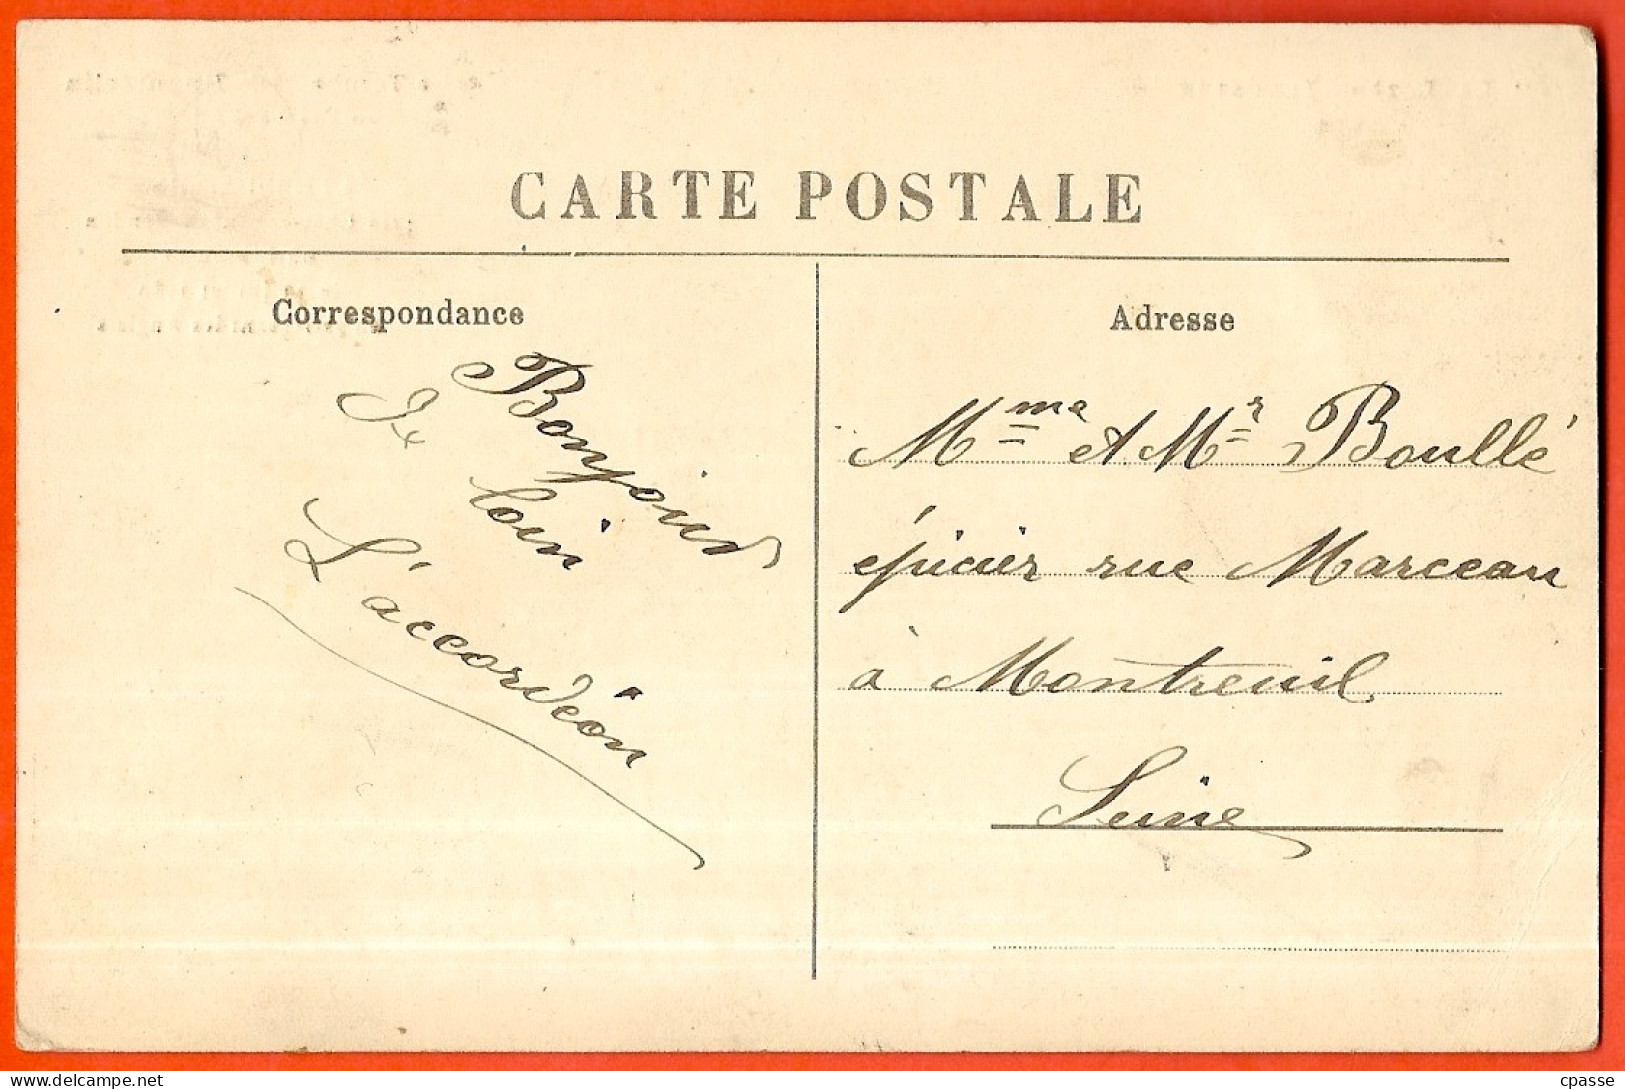 CARTE POSTALE
Correspondance
Bonjour
De loin
L'accordéon
Adresse
Mme et Mr Boullé
épicier rue Marceau
à Montreuil
Seine
cpasse